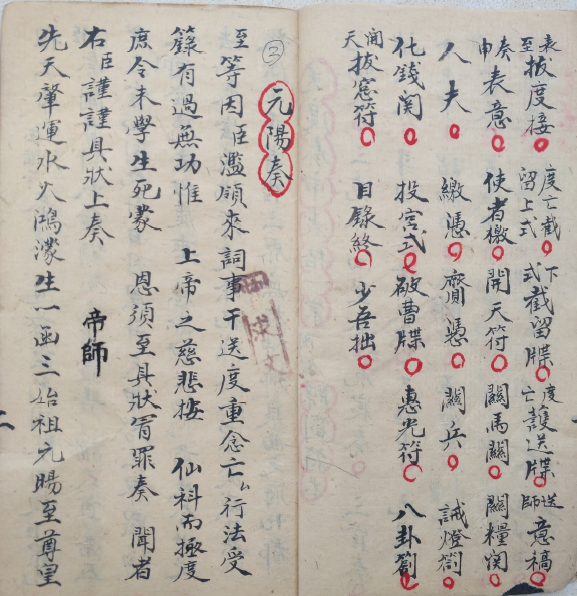 表至拔度接度亡截留上式下式截留牒度亡護送牒送師意稿
奏申表意使者檄開天符關馬關關糧関
人夫繳憑賫憑關兵誡燈劄
化錢関投宮式破曹牒惠光符八卦劄
開天拔窓符目錄終少吾拙
②
元陽奏
至等因臣濫領來詞事干送度重念亡厶行法受
籙有過無功惟上帝之慈悲按仙科而極度
庶令未學生死蒙恩須至具狀冐罪奏聞者
右臣謹謹具狀上奏帝師
先天肇運水火鴻濛生一函三始祖元暘至尊皇